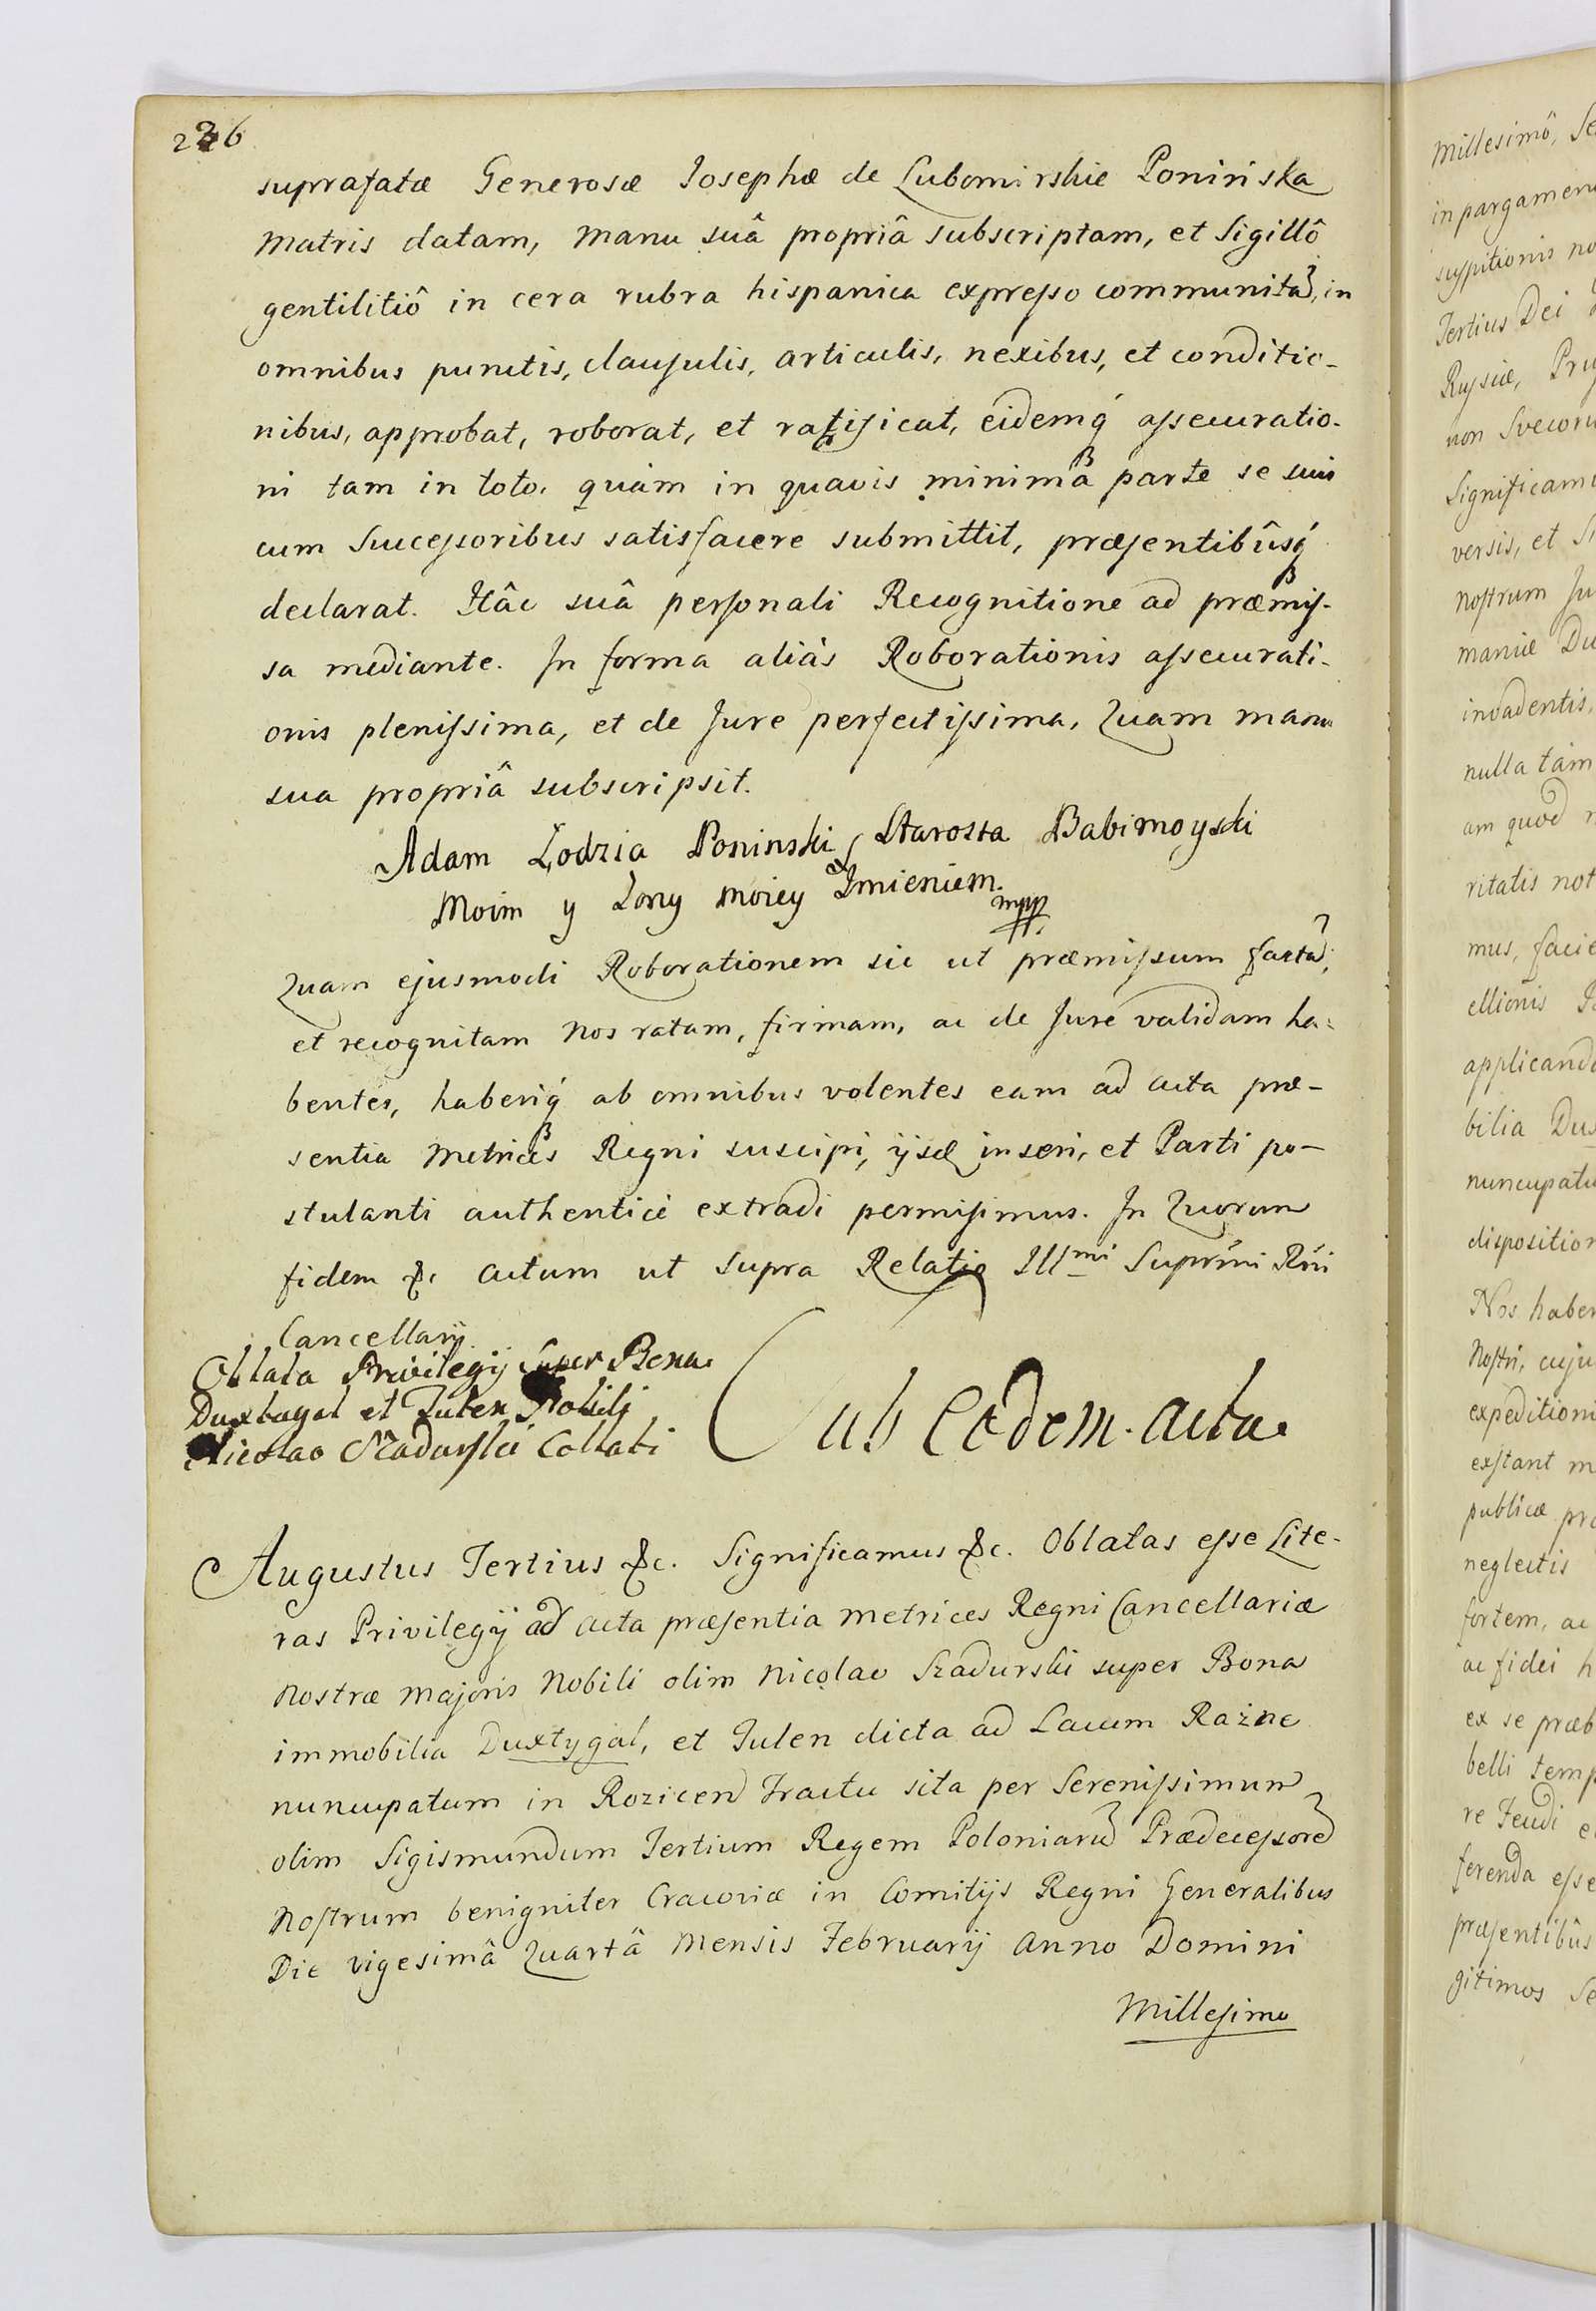 226
suprafatæ Generosæ Josephæ de Lubomirskie Poninska
Matris datam, manu suâ propriâ subscriptam, et Sigillô
gentilitiô in cera rubra hispanica expresso communitã, in
omnibus punctis, clausulis, articulis, nexibus, et conditio-
nibus, approbat, roborat, et ratificat, eidemq́ assecuratio-
ni tam in toto, quàm in quavis minima parte se suis
cum Successoribus satisfacere submittit, præsentibûsq́
declarat. Hâc suâ personali Recognitione ad præmis-
sa mediante. In forma aliàs Roborationis assecurati-
onis plenissima, et de Jure perfectissima, Quam manu
sua propriâ subscripsit.
Adam Łodzia Poninski Starosta Babimoyski
Moim y Zony moiey Imieniem.
mpp
Quam ejusmodi Roborationem sic ut præmissum factã,
et recognitam Nos ratam, firmam, ac de Jure validam ha-
bentes, haberiq́ ab omnibus volentes eam ad acta præ-
sentia Metrices Regni suscipi, ijsq́ inseri, et Parti po-
stulanti authenticè extradi permisimus. In Quorum
fidem &c actum ut supra Relatio Illmi Suprmi Rni
Cancellarij
Oblata Privilegij Super Bona
Duxtygal et Julen Nobili
Nicolao Szadurski Collati
Sub Eodem. Actu.
Augustus Tertius &c. Significamus &c. Oblatas esse Lite-
ras Privilegij ad Acta præsentia Metrices Regni Cancellariæ
Nostræ Majoris Nobili olim Nicolao Szadurski super Bona
immobilia Duxtygal, et Julen dicta ad Lacum Rażne
nuncupatum in Rozicen Tractu sita per Serenissimum
olim Sigismundum Tertium Regem Poloniarũ Prædecessorẽ
Nostrum benigniter Cracoviæ in Comitijs Regni Generalibus
Die vigesimâ Quartâ Mensis Februarij Anno Domini
Millesimo
Millesimô, Se
in pargamen
suspitionis no
Tertius Dei
Russiæ, Pru
non Svecoru
Significam
versis, et Si
Nostrum Ju
maniæ Du
invadentis,
nulla tam
am quod
ritatis not
mus, facie
ellionis
applicand
bilia Du
nuncupatu
disposition
Nos haben
Nostri, cuju
expeditioni
exstant m
publicæ pro
neglectis
fortem, ac
ac fidei h
ex se præb
belli temp
re Feudi e
ferenda esse
præsentibûs
gitimos Se